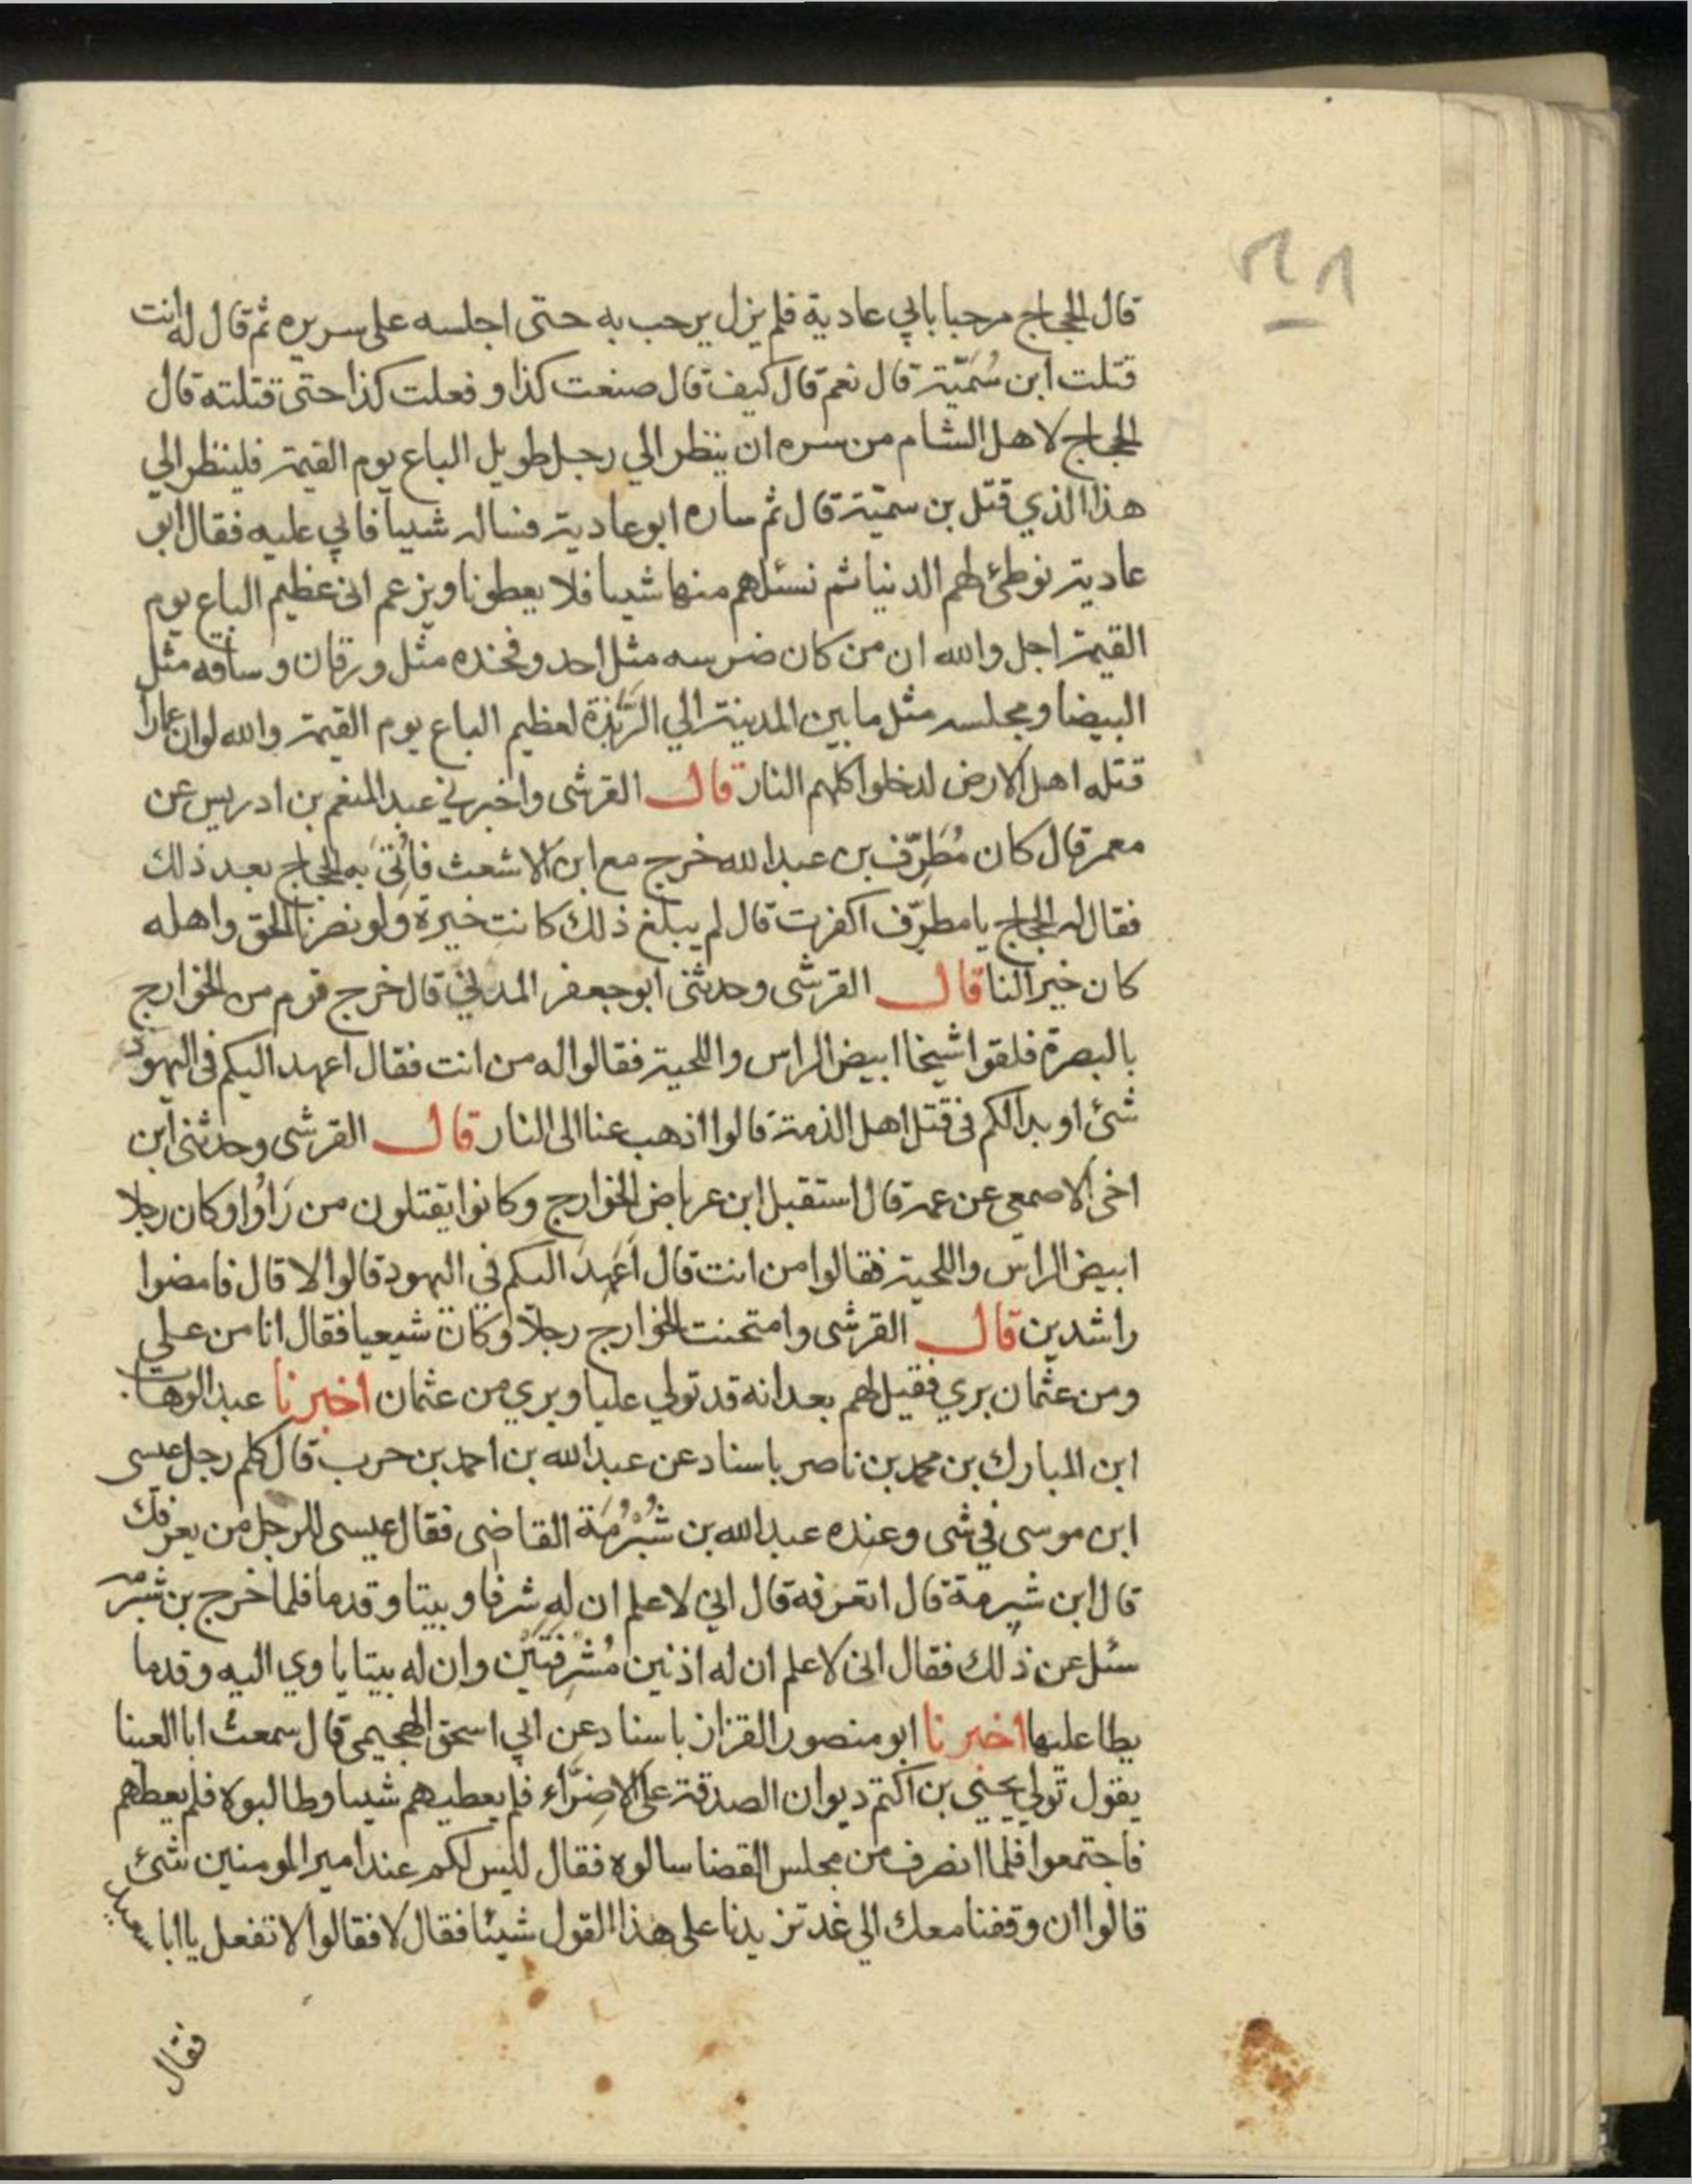 قال الحجاج مرحبا بابي عادية فلم يزل يرحب به حتى اجلسه على سريره ثم قال له انت
قتلت ابن سُمَيّة قال نعم قال كيف قال صنعت كذا و فعلت كذا حتى قتلته قال
الحجاج لاهل الشام من سره ان ينظر الي رجل طويل الباع يوم القيمة فلينظر الي
هذا الذي قتل بن سميّة قال ثم ساره ابو عادية فساله شيیا فابي عليه فقال ابو
عادية نوطئ لهم الدنيا ثم نسئلهم منها شيیا فلا يعطونا ويزعم انى عظيم الباع يوم
القيمة اجل والله ان من كان ضرسه مثل احد وفخذه مثل ورقان وساقه مثل
البيضا ومجلسه مثل ما بين المدينة الي الرَّبَذة لعظيم الباع يوم القيمة والله لو ان عمارا
قتله اهل الارض لدخلوا كلهم النار قال القرشى واخبرني عبد المنعم بن ادريس عن
معمر قال كان مُطَرِّف بن عبد الله خرج مع ابن الاشعث فاُتىَ به الحجاج بعد ذلك
فقال له الحجاج يا مطرّف اكفرت قال لم يبلغ ذلك كانت خيرة ولو نصرنا الحق واهله
كان خيرا لنا قال القرشى وحدثنى ابو جعفر المدني قال خرج قوم من الخوارج
بالبصرة فلقوا شيخا ابيض الراس واللحية فقالوا له من انت فقال اعهد اليكم فى اليهود
شئ او بدا لكم فى قتل اهل الذمة قالوا اذهب عنا الى النار قال القرشى وحدثنى ابن
اخى الاصمعي عن عمه قال استقبل ابن عرباض الخوارج وكانوا يقتلون من رَاَوُا وكان رجلا
ابيض الراس واللحية فقالوا من انت قال اَعُهِدَ اليكم في اليهود قالوا لا قال فامضوا
راشدين قال القرشى وامتحنت الخوارج رجلا وكان شيعيا فقال انا من علي
ومن عثمان بري فقيل لهم بعد انه قد تولي عليا وبري من عثمان اخبرنا عبد الوهاب
ابن المبارك بن محمد بن ناصر باسناد عن عبد الله بن احمد بن حرب قال كلم رجل عيسى
ابن موسى في شى وعنده عبد الله بن شُبْرُمَة القاضى فقال عيسى للرجل من يعرفك
قال ابن شبرمة قال اتعرفه قال اني لاعلم ان له شرفا وبيتا وقدما فلما خرج بن شبرمه
سئل عن ذلك فقال انى لاعلم ان له اذنين مُشْرِفَتَيْن وان له بيتا ياوي اليه وقدما
يطا عليها اخبرنا ابو منصور القزاز باسناد عن ابي اسحق الهجيمى قال سمعت ابا العينا
يقول تولي يحيي بن اكتم ديوان الصدقة على الاضرَّاء فلم يعطيهم شيیا وطالبوه فلم يعطهم
فاجتمعوا فلما انصرف من مجلس القضا سالوه فقال ليس لكم عند امير المومنين شئ
قالوا ان وقفنا معك الي غد تزيدنا على هذا القول شيئا فقال لا فقالوا لا تفعل يا ابا سعيد
فقال